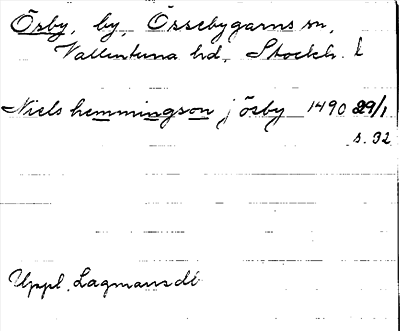 Ösby, by, Össebygarns sn,
Vallentuna hd, Stockh. l
Niels hemmingson j ösby 1490 29/1
s. 32
Uppl. Lagmansdb